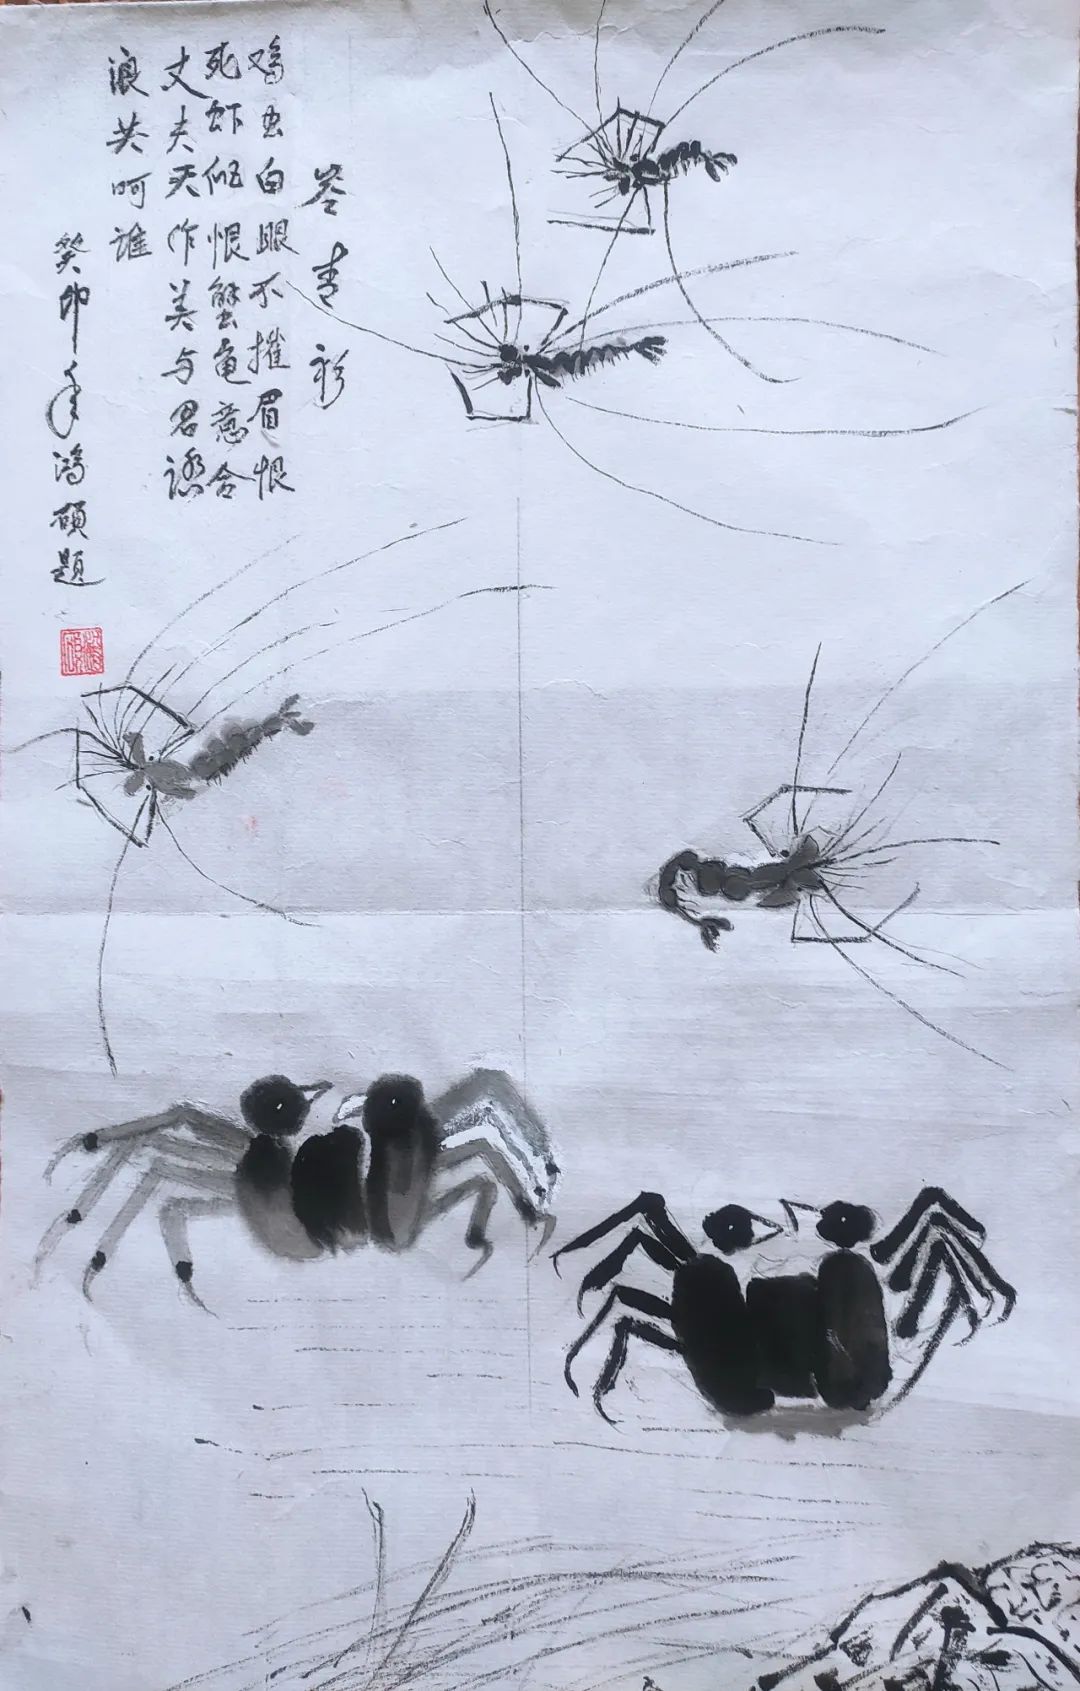 鸡虫白眼不摧眉恨
死虾似恨蟹龟意合
丈夫天作美与君
浪共呵谁
癸卯年鸿硕题